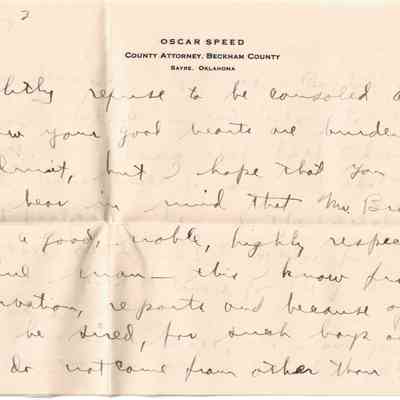 2
OSCAR SPEED
COUNTY ATTORNEY, BECKHAM COUNTY
SAYRE, OKLAHOMA
refuse to be consoled a
your good hearts are burden
but I hope that you
bear in mind that Mr. Bra
a good, noble, highly respec
man — this I know fro
vation, reports and because o
be sired, for such boys a
do not come from other than